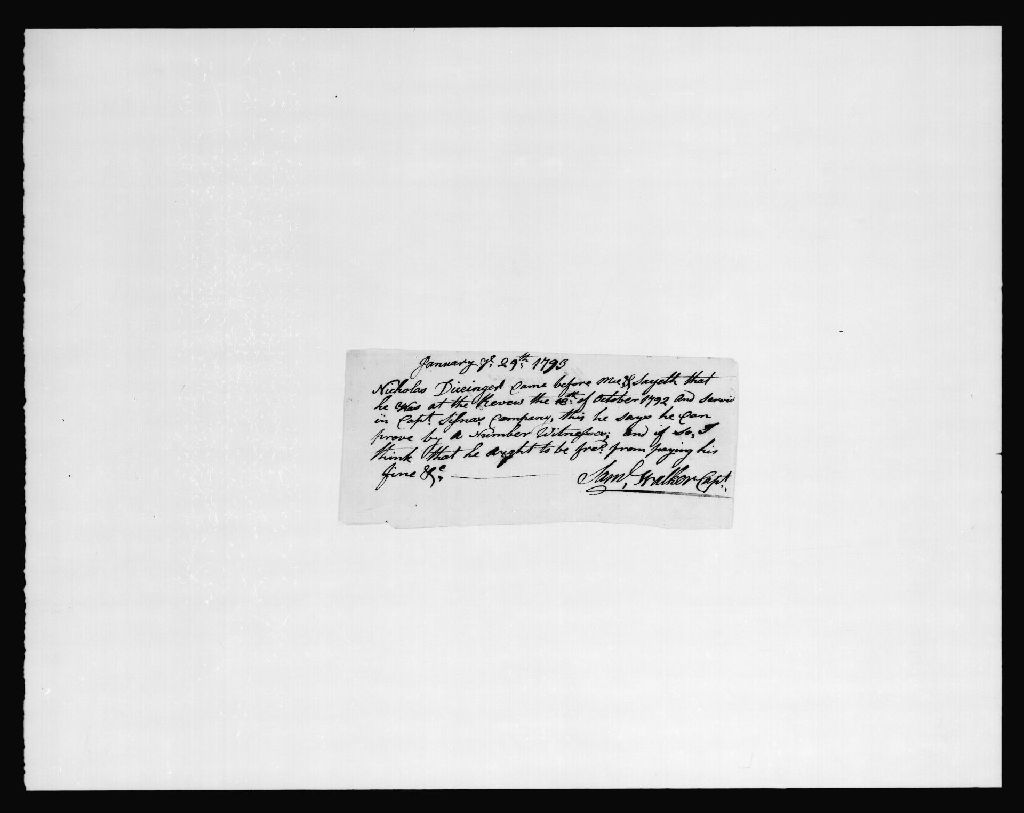 January ye. 29th. 1793
Nicholas Dieinger came before me & Sayeth that
he was at the Revew the 18th. of October 1792 and servd
in Capt. Company, this he says he can
prove by a Number Witnesses, and if So, I
think that he Aught to be free from paying his
fine &c.
Saml. Walker Capt.